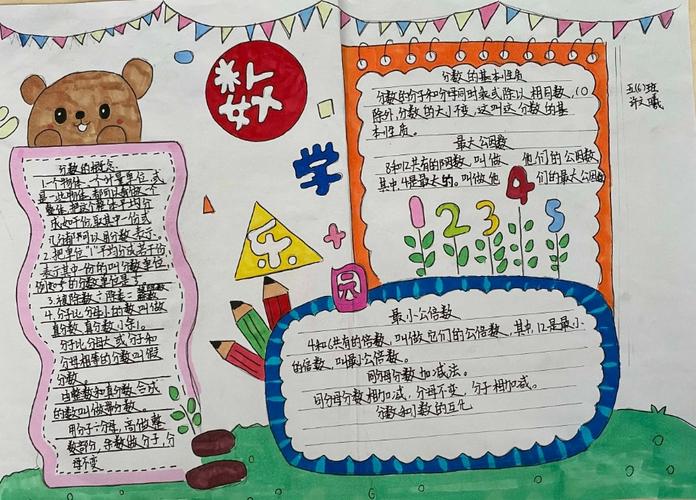 数
学
乐
园
五(6)班
分数的概念
1.一个物体、一个计量单位或
是一些物体,都可以看做一个
整体,把这个整体平均分
成如干份,取其中一份或
几份都可以用分数表示。
2.把单位"1"平均分成若干份
表示其中一份的叫分数单位
3.被除数÷除数=
4.分子比分母小的数叫做
真分数,真分数小于1。
分子比分母大或分子和
分母相等的分数叫假
分数。
由整数和真分数合成
的数叫做带分数。
用分子÷分母,商做整
数部分,余数做分子,分
母不变
分数的基本性质
分数的分子和分母同时乘或除以相同数,(0
除外,分数的大小不变,这叫这分数的基
本性质。
最大公因数
8和12共有的因数,叫做 他们的公因数
其中4是最大的。叫做他 们的最大公因数
1 2 3 4 5
最小公倍数
4和6共有的倍数,叫做它们的公倍数,其中,12是最小
的倍数,叫最小公倍数。
同分母分数加减法。
同分母分数相加减,分母不变,分子相加减。
分数和小数的互化